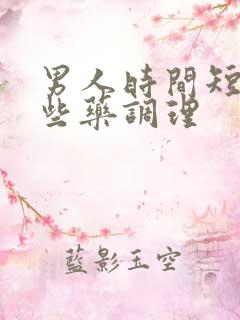 男人時間短
些藥調理
藍影玉空